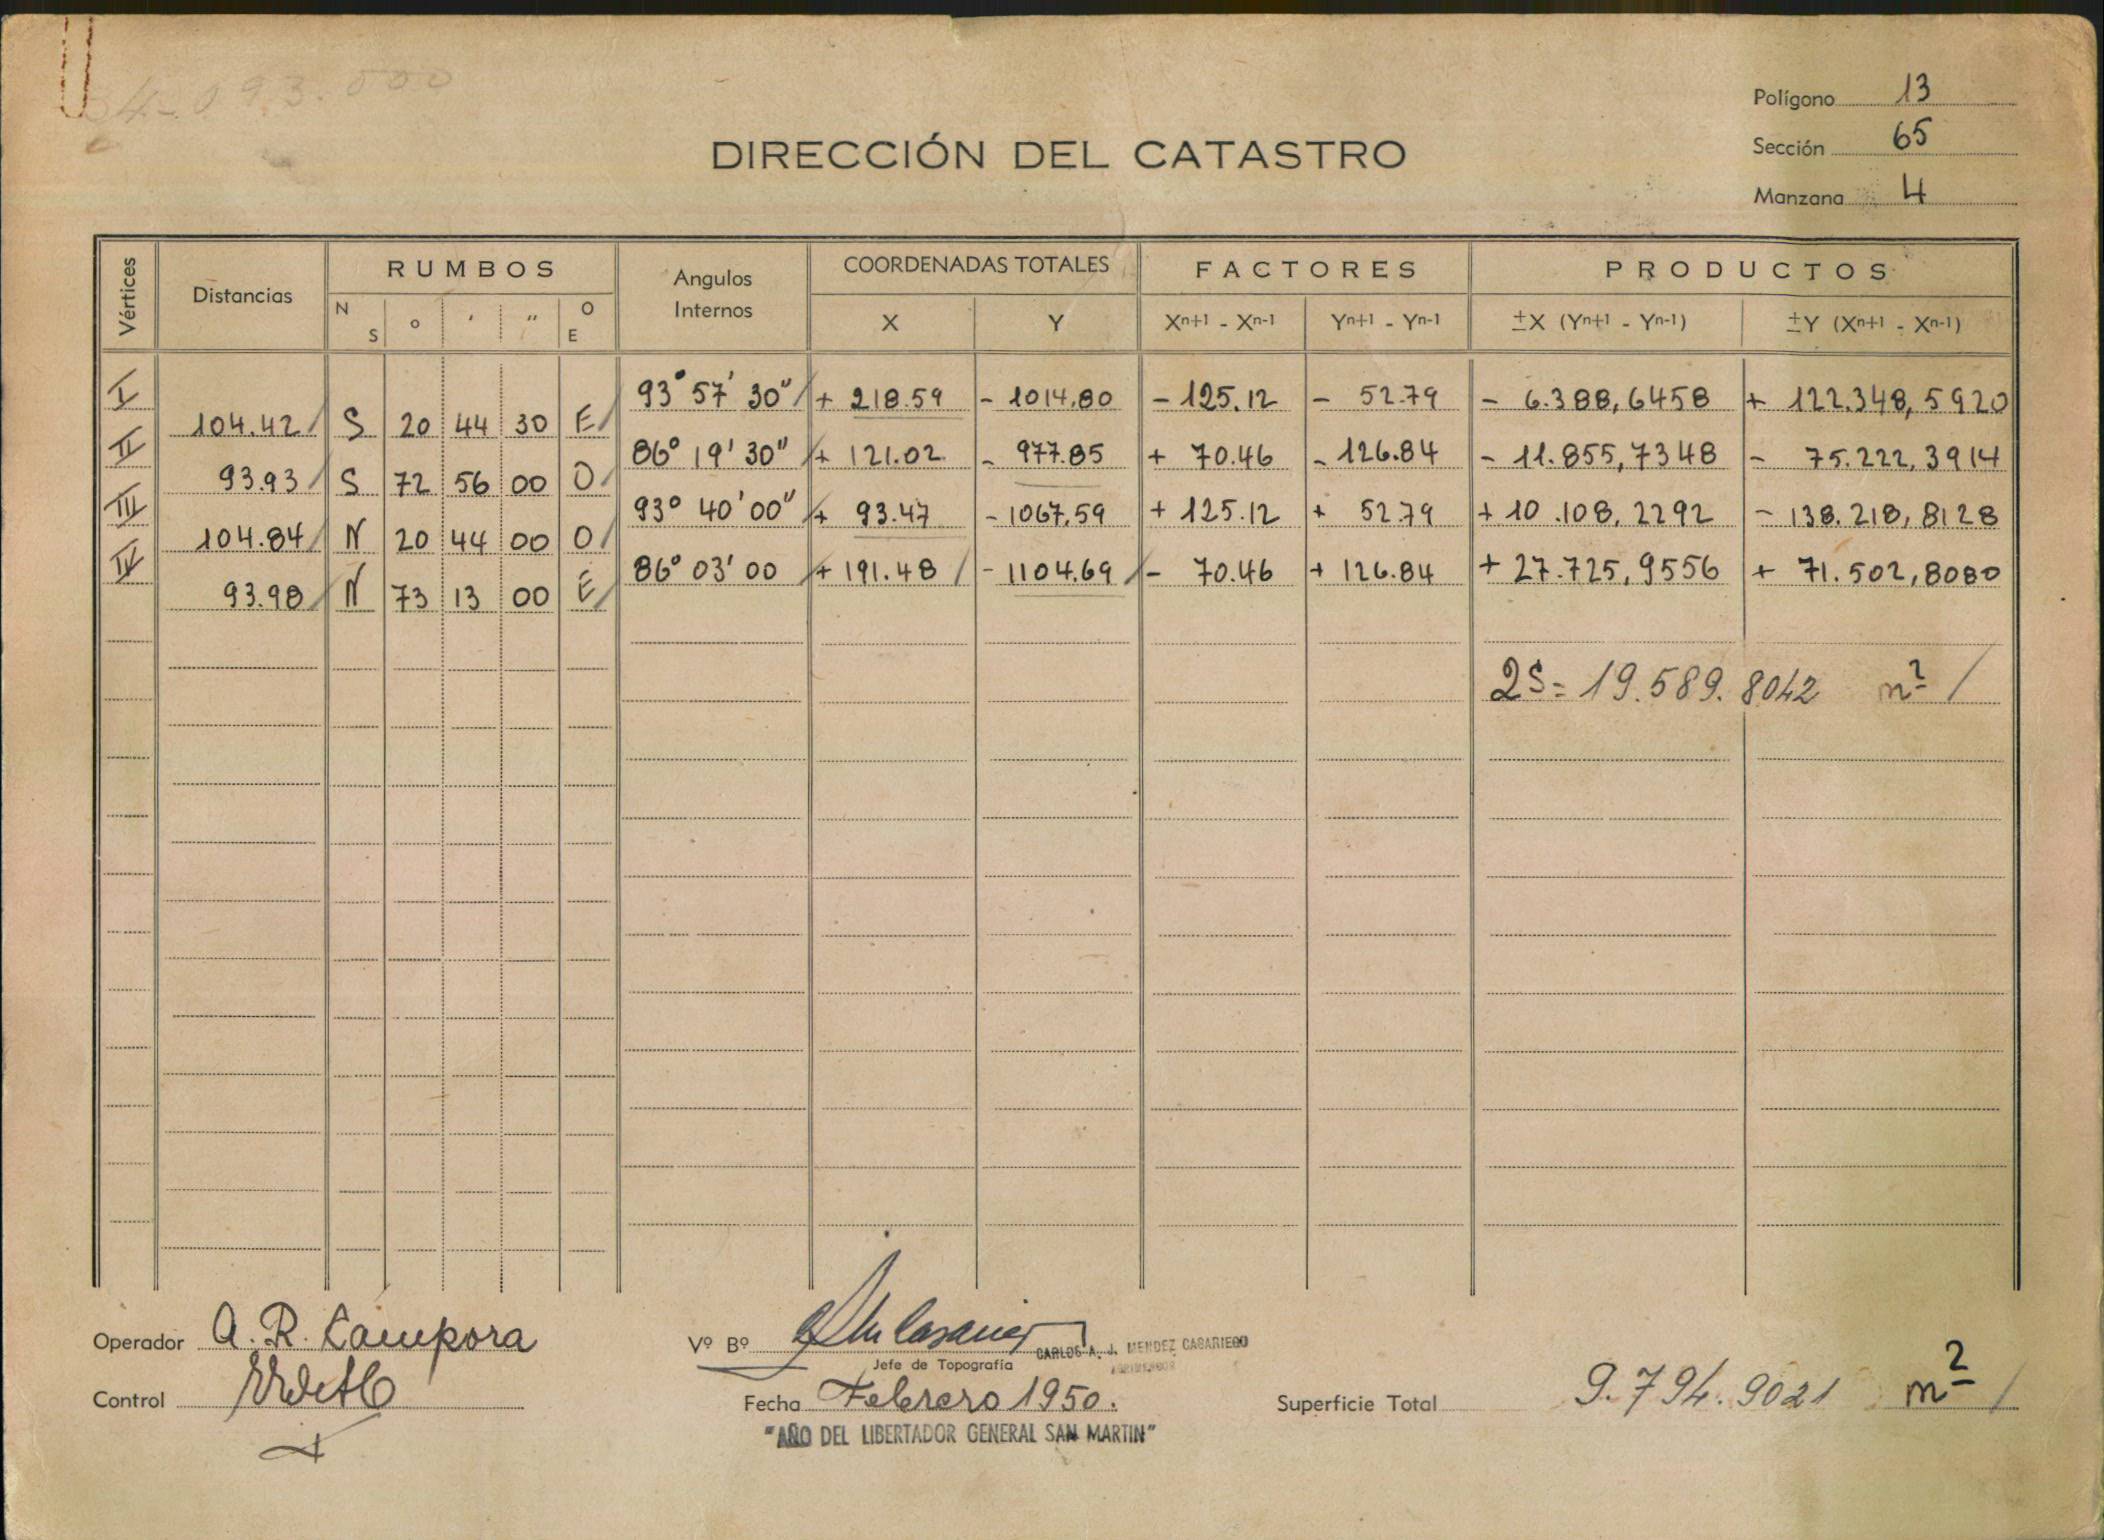 34-093.000
Polígono 13
DIRECCIÓN DEL CATASTRO
Sección 65
Manzana 4
Vértices Distancias RUMBOS Angulos Internos COORDENADAS TOTALES FACTORES PRODUCTOS
N S ° ' " O E X Y Xn+1 - Xn-1 Yn+1 - Yn-1 ±X (Yn+1 - Yn-1) ±Y (Xn+1 - Xn-1)
I 93° 57' 30" + 218.59 - 1014,80 - 125.12 - 52.79 - 6.388,6458 + 122.348,5920
104.42 S 20 44 30 E
II 86° 19' 30" + 121.02 - 977.85 + 70.46 - 126.84 - 11.855,7348 - 75.222,3914
93.93 S 72 56 00 O
III 93° 40' 00" + 93.47 - 1067,59 + 125.12 + 52.79 + 10.108,2292 - 138.218,8128
104.84 N 20 44 00 O
IV 86° 03' 00 + 191.48 - 1104.69 - 70.46 + 126.84 + 27.725,9556 + 71.502,8080
93.98 N 73 13 00 E
2S = 19.589.8042 m²
Operador A. R. Cámpora
Vº Bº
Jefe de Topografía
CARLOS A. J. MENDEZ CASARIEGO
AGRIMENSOR
Control
Fecha Febrero 1950.
Superficie Total 9.794.9021 m²
"AÑO DEL LIBERTADOR GENERAL SAN MARTIN"